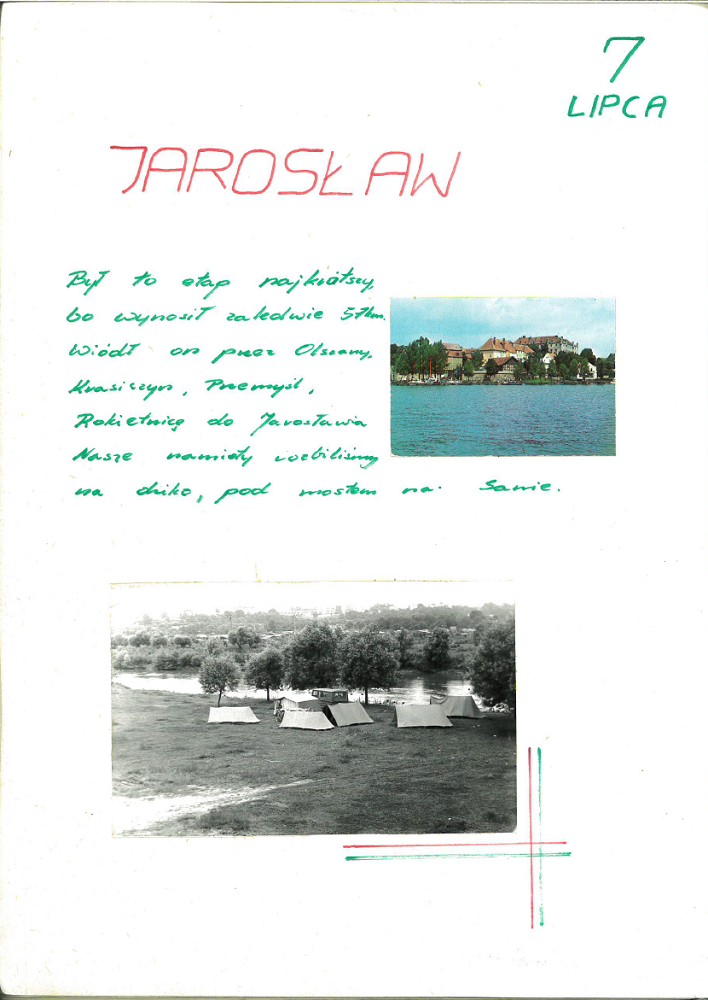 7
LIPCA
JAROSŁAW
Był to etap najkrótszy,
bo wynosił zaledwie 57km.
Wiódł on przez Olszany,
Krasiczyn, Przemyśl,
Rokietnicę do Jarosławia
Nasze namioty rozbiliśmy
na dziko, pod mostem na Sanie.